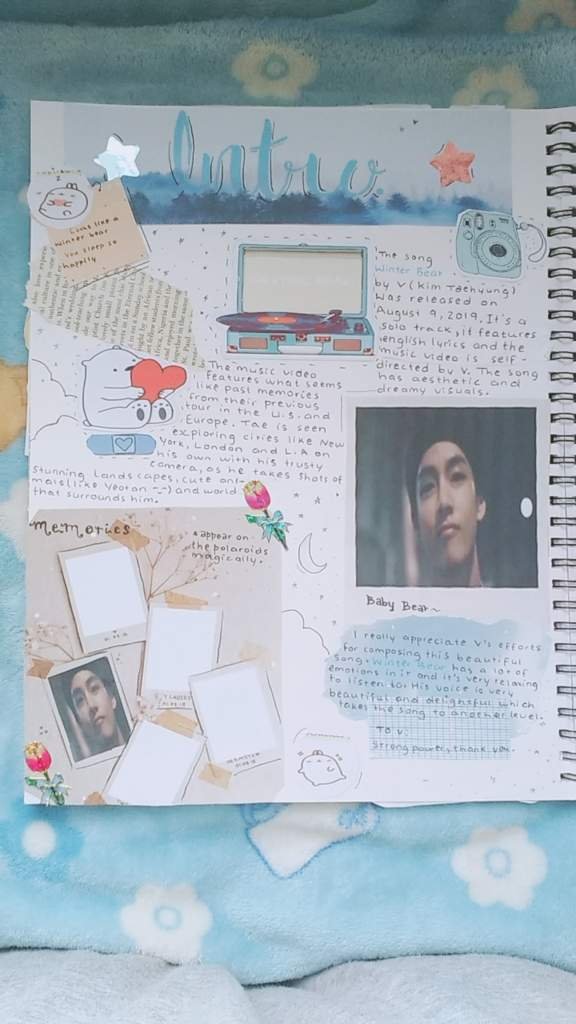 Intro
Looks like a
winter bear
You sleep so
happily
The song
Winter Bear
by V (Kim Taehyung)
was released on
August 9, 2019. It's a
solo track, it features
english lyrics and the
music video is self-
directed by V. The song
has aesthetic and
dreamy visuals.
The music video
features what seems
like past memories
from their previous
tour in the U.S. and
Europe. Tae is seen
exploring cities like New
York, London and L.A on
his own with his trusty
camera, as he takes shots of
stunning landscapes, cute ani-
mals (like Yeotan ~~) and world
that surrounds him.
memories
appear on
the polaroids
magically.
Baby Bear~
I really appreciate V's efforts
for composing this beautiful
song. Winter Bear has a lot of
emotions in it and it's very relaxing
to listen to. His voice is very
beautiful and delightful which
takes the song to another level.
To V:
Strong power, thank you.